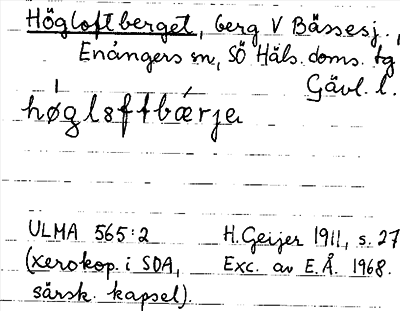 Högloftberget, berg V Bässesj.,
Enångers sn, SÖ Häls. doms. tg
Gävl. l.
høgloftbærje
ULMA 565:2 H. Geijer 1911, s. 27
(xerokop. i SOA, Exc. av E.Å. 1968.
särsk. kapsel).